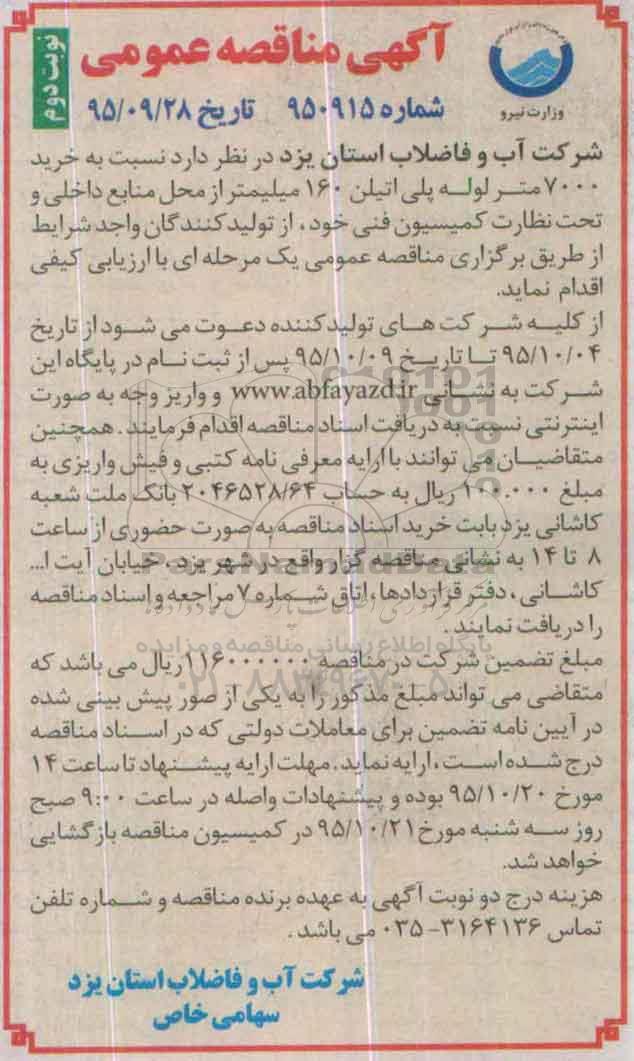 آگهی مناقصه عمومی
نوبت دوم
وزارت نیرو
شماره ۹۵۰۹۱۵ تاریخ ۹۵/۰۹/۲۸
شرکت آب و فاضلاب استان یزد در نظر دارد نسبت به خرید
۷۰۰۰ متر لوله پلی اتیلن ۱۶۰ میلیمتر از محل منابع داخلی و
تحت نظارت کمیسیون فنی خود، از تولیدکنندگان واجد شرایط
از طریق برگزاری مناقصه عمومی یک مرحله ای با ارزیابی کیفی
اقدام نماید.
از کلیه شرکت های تولیدکننده دعوت می شود از تاریخ
۹۵/۱۰/۰۴ تا تاریخ ۹۵/۱۰/۰۹ پس از ثبت نام در پایگاه این
شرکت به نشانی www.abfayazd.ir و واریز وجه به صورت
اینترنتی نسبت به دریافت اسناد مناقصه اقدام فرمایند. همچنین
متقاضیان می توانند با ارایه معرفی نامه کتبی و فیش واریزی به
مبلغ ۱۰۰.۰۰۰ ریال به حساب ۲۰۴۶۵۲۸/۶۴ بانک ملت شعبه
کاشانی یزد بابت خرید اسناد مناقصه به صورت حضوری از ساعت
۸ تا ۱۴ به نشانی مناقصه گزار واقع در شهر یزد، خیابان آیت ا...
کاشانی، دفتر قراردادها، اتاق شماره ۷ مراجعه و اسناد مناقصه
را دریافت نمایند.
مبلغ تضمین شرکت در مناقصه ۱۱۶۰۰۰۰۰۰ ریال می باشد که
متقاضی می تواند مبلغ مذکور را به یکی از صور پیش بینی شده
در آیین نامه تضمین برای معاملات دولتی که در اسناد مناقصه
درج شده است، ارایه نماید. مهلت ارایه پیشنهاد تا ساعت ۱۴
مورخ ۹۵/۱۰/۲۰ بوده و پیشنهادات واصله در ساعت ۹:۰۰ صبح
روز سه شنبه مورخ ۹۵/۱۰/۲۱ در کمیسیون مناقصه بازگشایی
خواهد شد.
هزینه درج دو نوبت آگهی به عهده برنده مناقصه و شماره تلفن
تماس ۳۱۶۴۱۳۶-۰۳۵ می باشد.
شرکت آب و فاضلاب استان یزد
سهامی خاص
پایگاه اطلاع رسانی مناقصه و مزایده
۰۲۱-۸۸۳۴۹۶۷۰-۵